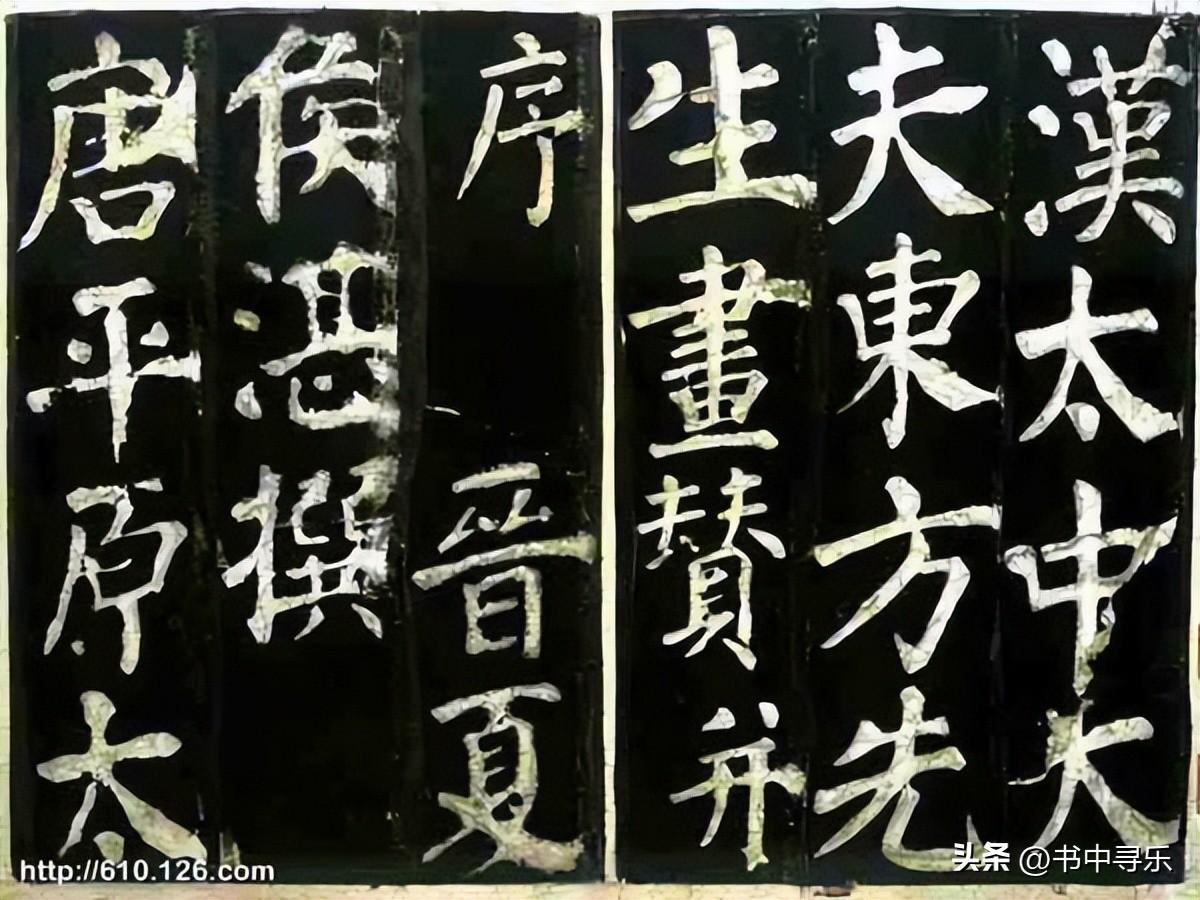 漢太中大
夫東方先
生畫贊并
序 晉夏
侯湛撰
唐平原太
http://610.126.com
头条 @书中寻乐